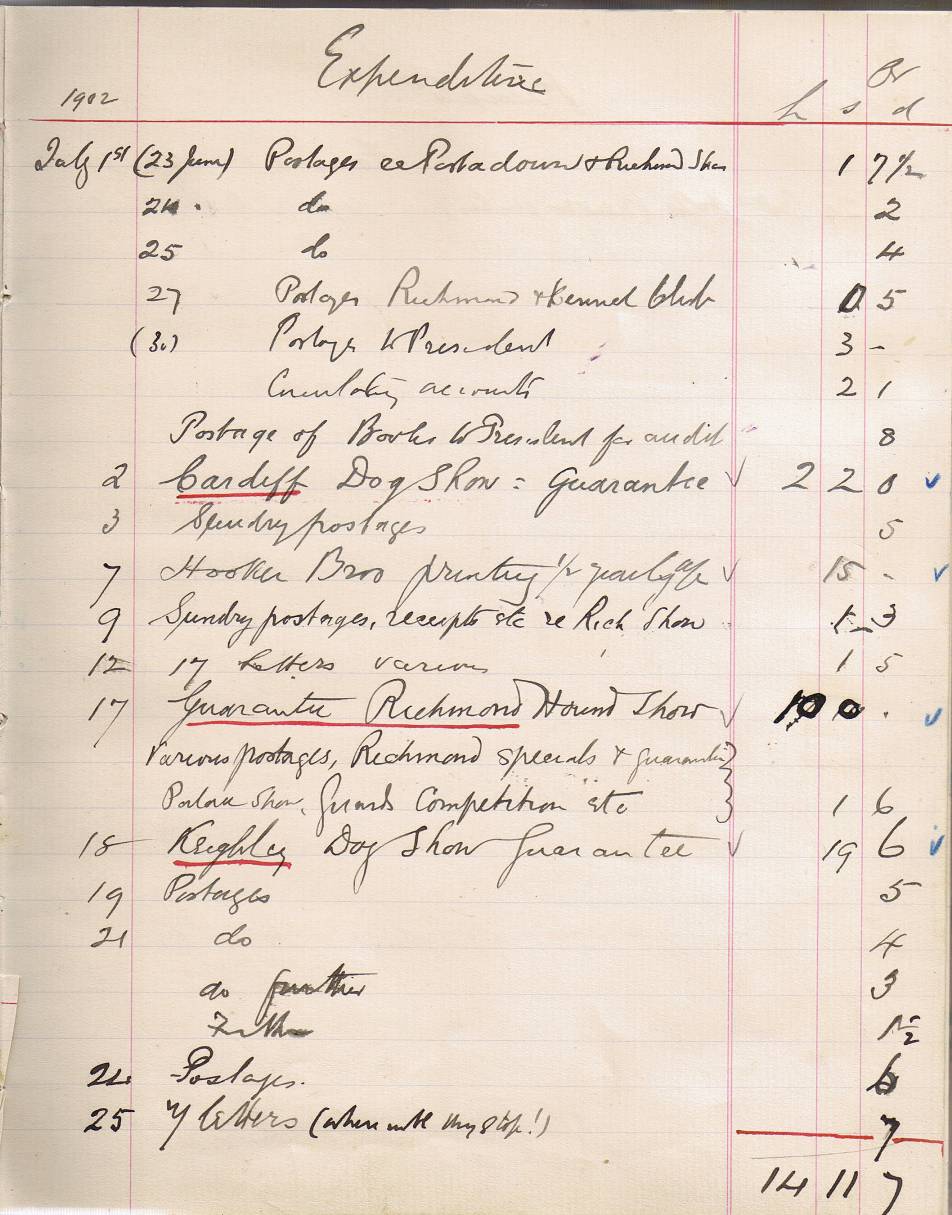 Expenditure
1902 L s d
July 1st (23 June) Postages re Portadown & Richmond Show 1 7½
24 do 2
25 do 4
27 Postages Richmond & Kennel Club 0 5
(30) Postages to President 3 -
Circulating accounts 2 1
Postage of Books to President for audit 8
2 Cardiff Dog Show = Guarantee 2 2 0
3 Sundry postages 5
7 Hooker Bros printing ½ yearly a/c 15 -
9 Sundry postages, receipts etc re Rich Show 3
12 17 letters various 1 5
17 Guarantee Richmond Hound Show 10 0 .
Various postages, Richmond specials & guarantee
Show, Guards Competition etc 1 6
18 Keighley Dog Show Guarantee 19 6
19 Postages 5
21 do 4
do further 3
Further 1½
24 Postages. 6
25 7 letters (where will they stop!) 7
14 11 7